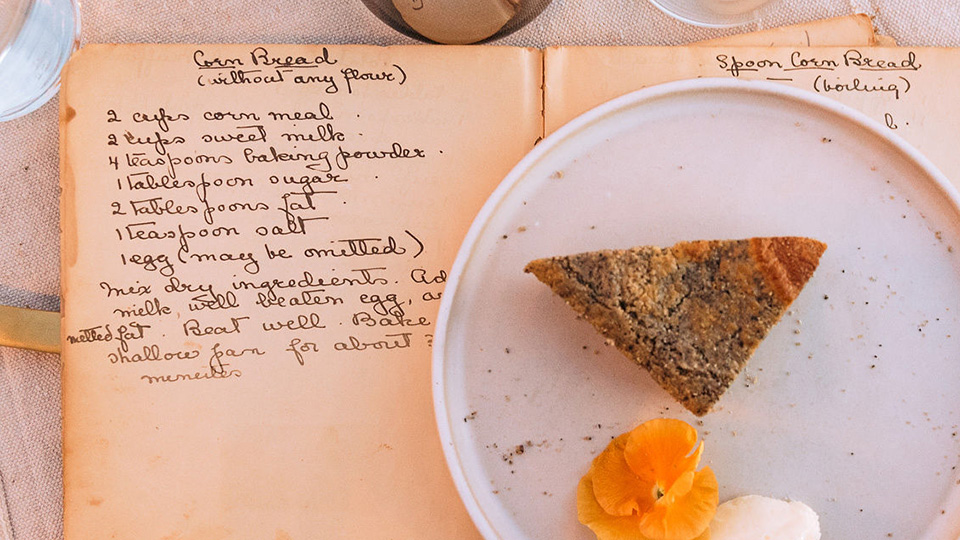 Corn Bread
(without any flour)
2 cups corn meal.
2 cups sweet milk.
4 teaspoons baking powder.
1 tablespoon sugar.
2 tablespoons fat.
1 teaspoon salt
1 egg (may be omitted)
Mix dry ingredients. Ad
milk, well beaten egg, a
melted fat. Beat well. Bake
shallow pan for about 3
minutes
Spoon Corn Bread
(boiling)